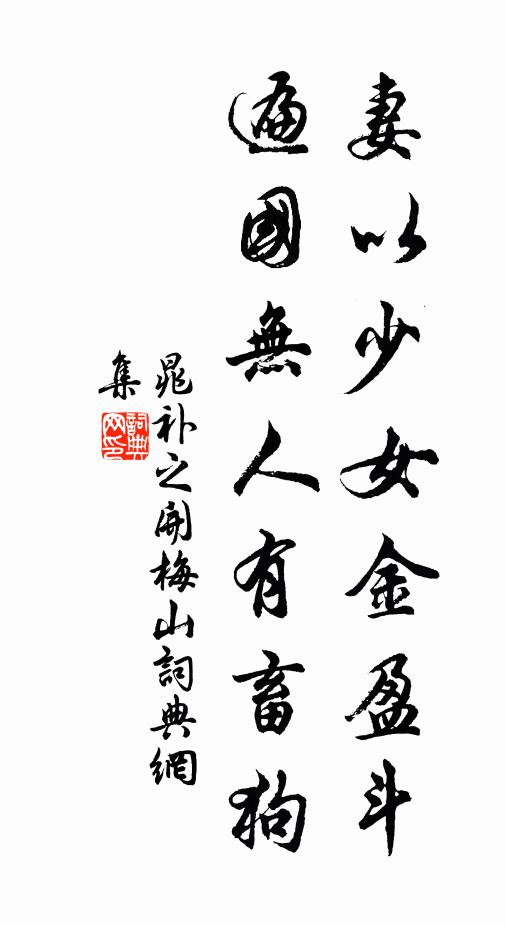 妻以少女金盈斗
遍國無人有畜狗
晁补之開梅山詞典網
集
詞典
网印